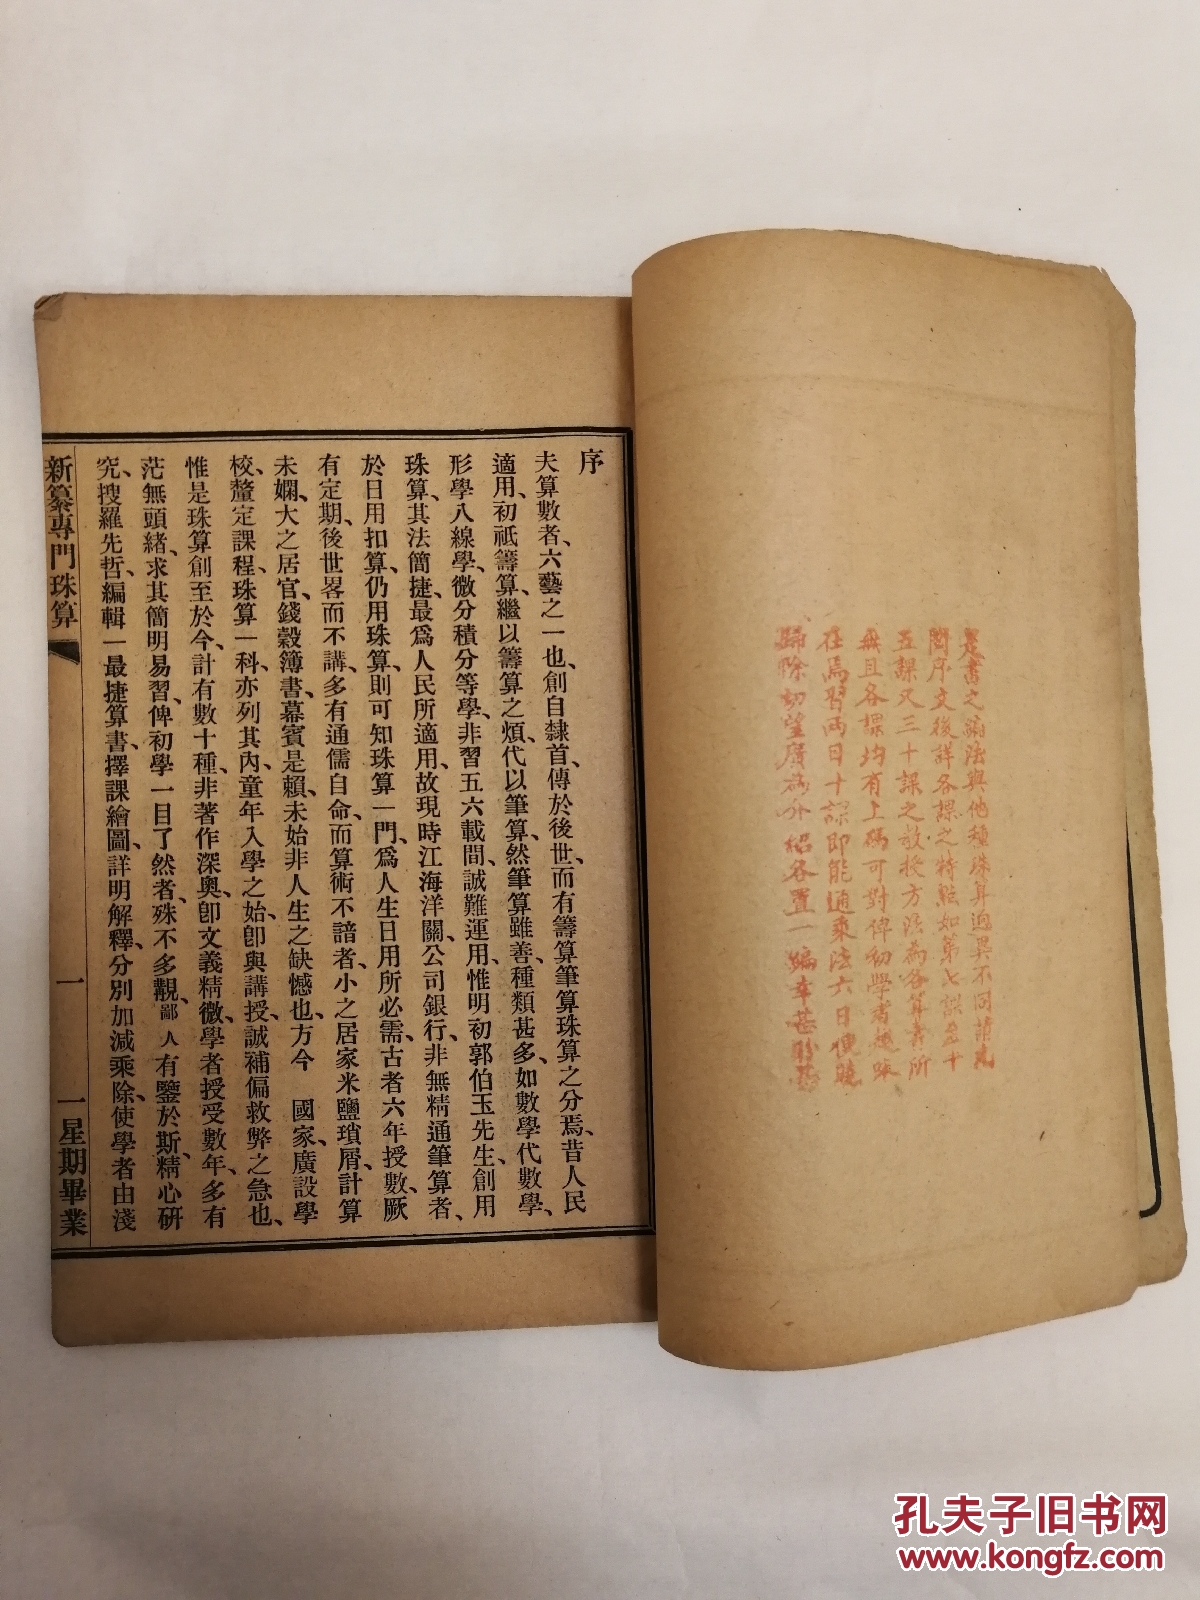 是書之編法與他種珠算迥異不同請先
閱序文後詳各課之特點如第七課至十
五課又三十課之教授方法為各算書所
無且各課均有上碼可對俾初學者
在焉習兩日十課即能通乘法六日便曉
歸除切望廣為介紹各置一編幸甚
序
夫算數者、六藝之一也、創自隸首、傳於後世、而有籌算筆算珠算之分焉、昔人民
適用、初祇籌算、繼以籌算之煩、代以筆算、然筆算雖善、種類甚多、如數學代數學、
形學八線學、微分積分等學、非習五六載間、誠難運用、惟明初郭伯玉先生、創用
珠算、其法簡捷、最爲人民所適用、故現時江海洋關、公司銀行、非無精通筆算者、
於日用扣算、仍用珠算、則可知珠算一門、爲人生日用所必需、古者六年授數、厥
有定期、後世畧而不講、多有通儒自命、而算術不諳者、小之居家米鹽瑣屑計算
未嫻、大之居官、錢穀簿書、幕賓是賴、未始非人生之缺憾也、方今　國家廣設學
校、釐定課程、珠算一科、亦列其內、童年入學之始、卽與講授、誠補偏救弊之急也、
惟是珠算創至於今、計有數十種、非著作深奧、卽文義精微、學者授受數年、多有
茫無頭緒、求其簡明易習、俾初學一目了然者、殊不多覯、鄙人有鑒於斯、精心研
究、搜羅先哲、編輯一最捷算書、擇課繪圖、詳明解釋、分別加減乘除、使學者由淺
新纂專門珠算
一
一星期畢業
孔夫子旧书网
www.kongfz.com